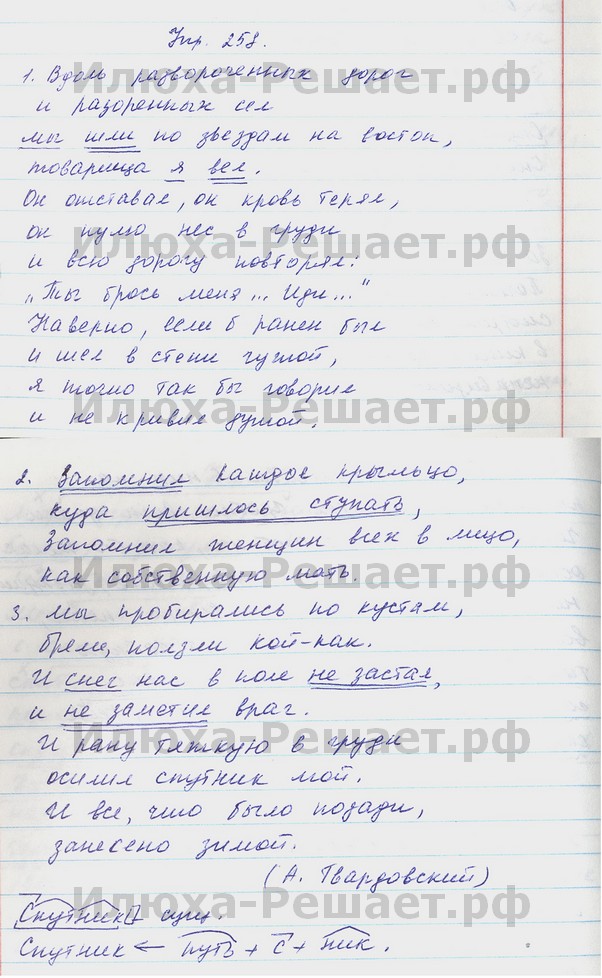 Упр. 258.
1. Вдоль развороченных дорог
и разоренных сел
мы шли по звездам на восток,
товарища я вел.
Он отставал, он кровь терял,
он пулю нес в груди
и всю дорогу повторял:
„Ты брось меня... Иди..."
Наверно, если б ранен был
и шел в степи чужой,
я точно так бы говорил
и не кривил душой.
2. Запомнил каждое крыльцо,
куда пришлось ступать,
Запомнил женщин всех в лицо,
как собственную мать.
3. Мы пробирались по кустам,
брели, ползли кой-как.
И снег нас в поле не застал,
и не заметил враг.
И рану тяжкую в груди
осилил спутник мой.
И все, что было позади,
занесено зимой.
(А. Твардовский)
Спутник - сущ.
Спутник ← путь + с + ник.
Илюха-Решает.рф
Илюха-Решает.рф
Илюха-Решает.рф
Илюха-Решает.рф
Илюха-Решает.рф
Илюха-Решает.рф